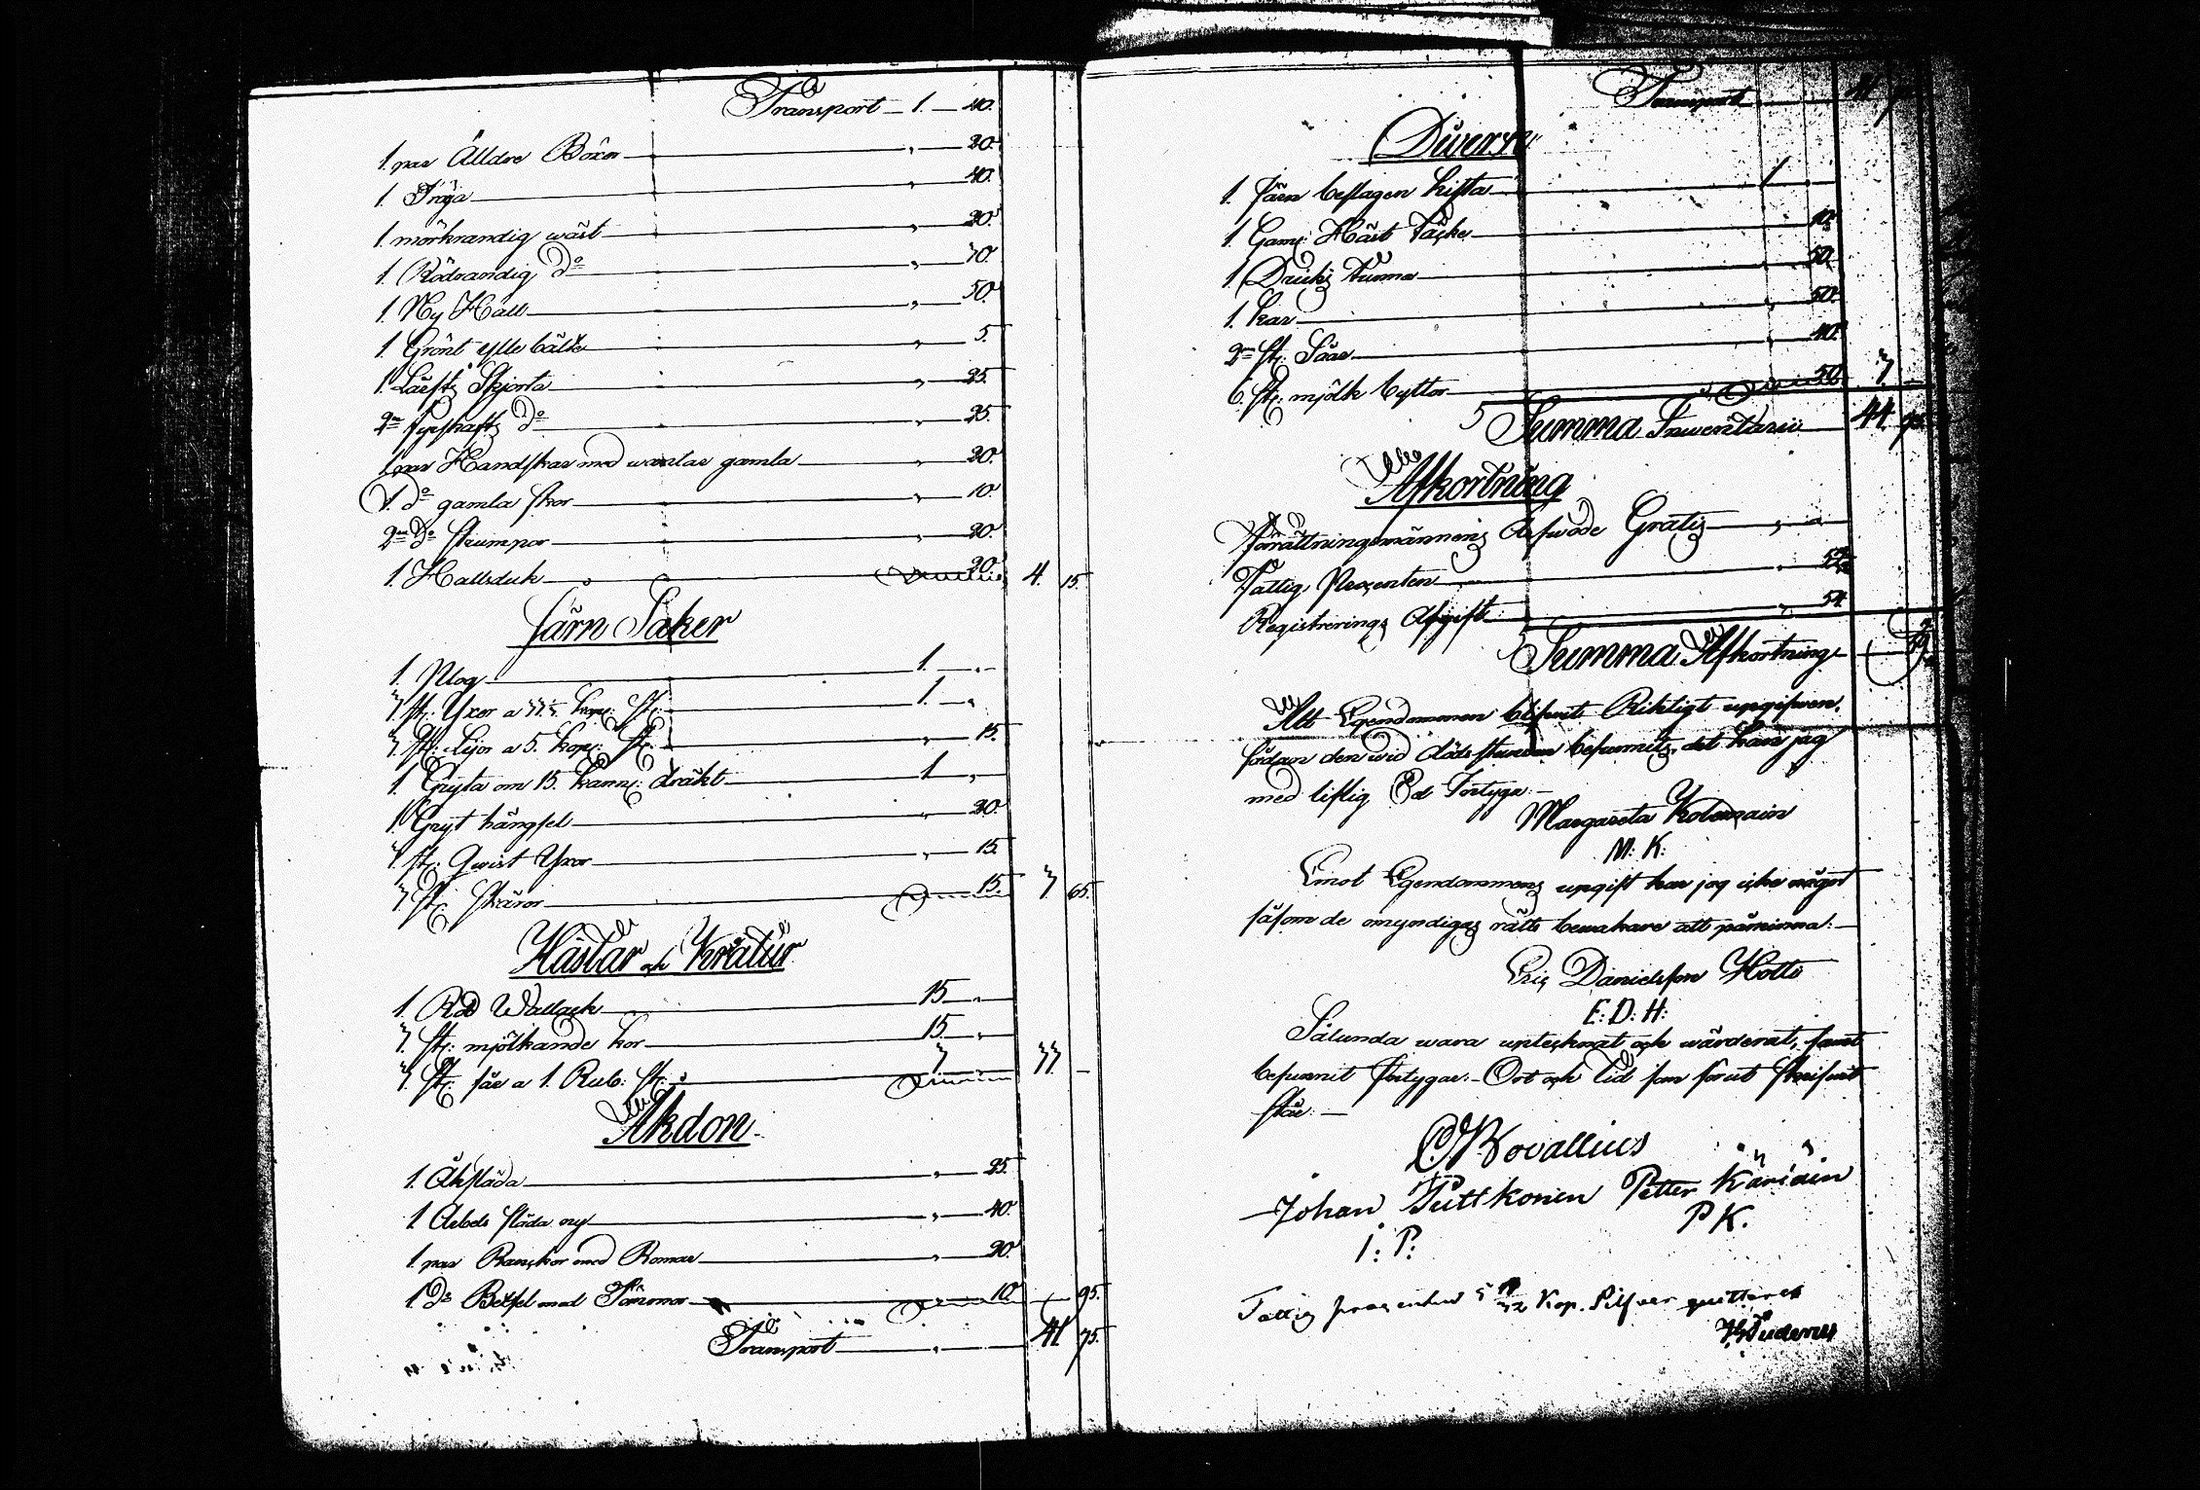 Transport 1. 40.
1. par Älldre Böxor " 20.
1. Tröja " 40.
1. mörkrandig wäst " 20.
1. Rödrandig Do " 70.
1. Ny Hatt " 50.
1. Grönt ylle bälte " 5.
1. Lärfts Skjorta " 25.
2ne Do " 25.
1. par Handskar med wantar gamla " 20.
1. Do gamla skor " 10.
2ne Do Strumpor " 20.
1. Hallsduk " 20. 4. 15.
Järn Saker
1. Plog 1. "
3. st: Yxor a 33⅓ kop: st: 1. "
3. st: Lijor a 5. kop: st: " 15.
1. Gryta om 15. kann: dräkt 1 "
1. Gryt hängsel " 20.
3. st: Qwist Yxor " 15.
3. st: Skäror " 15. 3 65.
Hästar och Kratur
1. Röd Wallack 15 "
3. st: mjölkande kor 15 "
3. st: får a 1. Rub: st: 3 33 –
Åkdon
1. Åksläda " 25.
1 Arbets släda ny " 40.
1. par Ranckor med Romar " 20.
1 Do Betsel med Tömmar " 10. 95.
Transport " 41 75.
Transport 41
Diverse
1. Järn beslagen kista 1 "
1. Gam: Häst Täcke " 10.
1 Dricks tunna " 50.
1. kar " 50.
2ne st: Såar " 40.
6. st: mjölk byttor " 50. 3
Summa Inventarii 44
Afkortning
Förrättningsmännens Arfwode Gratis " "
Fattig Procenten "
Registrerings Afgift " 54
Summa Afkortning
Att Egendommen blifwit Riktigt uppgifwen,
sådan den wid dödsstunden befunnits, det kan jag
med liflig Ed Fortyga:–
Margareta Kolemain
M: K:
Emot Egendommens uppgift har jag icke något
såsom de omyndigas rätts bewakare att påminna:–
Eric Danielsson Hotti
E: D: H:
Sålunda wara upptecknat och wärderat, samt
befunnit fortygar:– Ort och Tid som förut skrifwit
står:–
Bovallius
Johan Puttkonen Petter Käriäin
I: P: P K.
Fattig procenten 5 Kop. Silfver quitteras